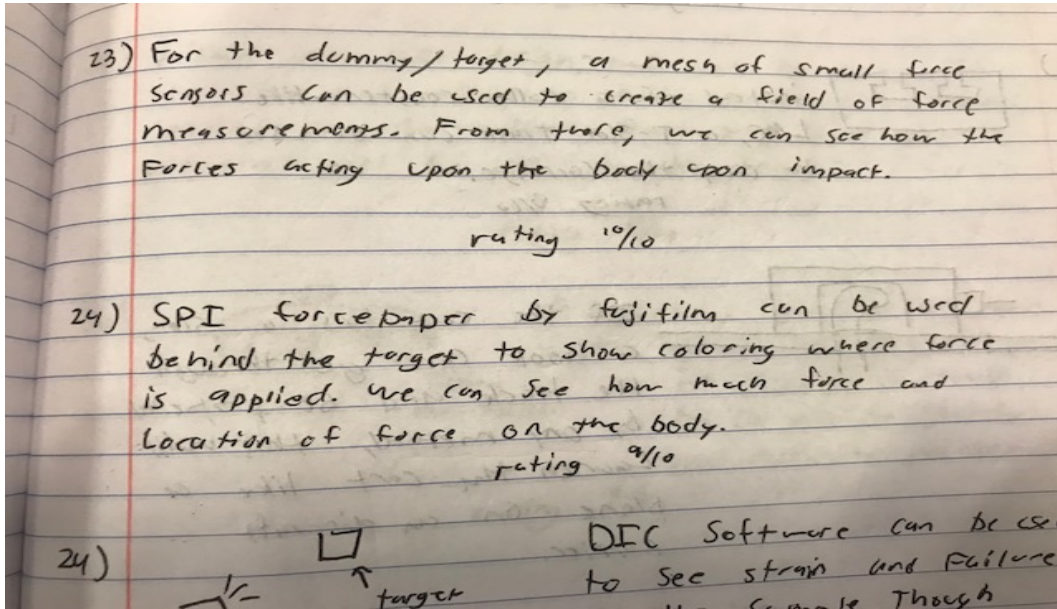 23) For the dummy/target, a mesh of small force
sensors can be used to create a field of force
measurements. From there, we can see how the
Forces acting upon the body upon impact.
rating 10/10
24) SPI forcepaper by fujifilm can be used
behind the target to show coloring where force
is applied. we can see how much force and
Location of force on the body.
rating 9/10
24)
target
DIC Software can be use
to see strain and Failure
Sample Though